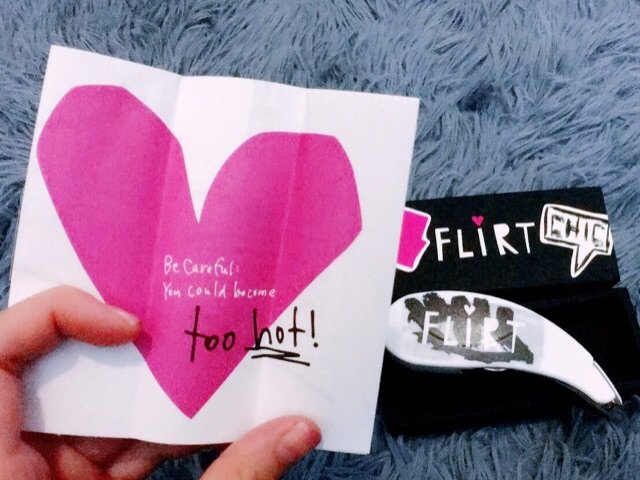 Be Careful:
You could become
too hot!
FLiRT
CHIC
FLiRT